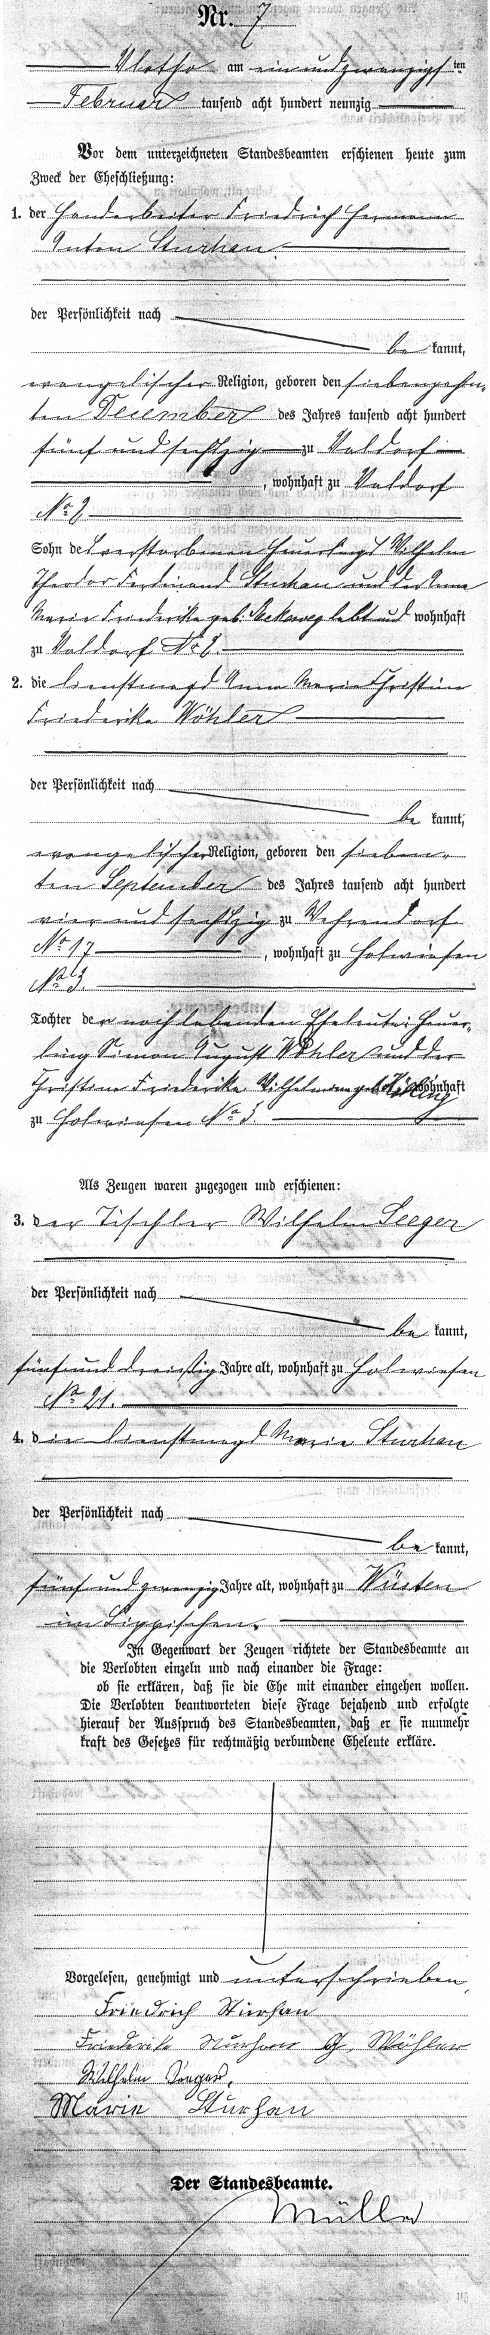 Nr. 7
Vlotho am ein und zwanzigsten
Februar tausend acht hundert neunzig
Vor dem unterzeichneten Standesbeamten erschienen heute zum
Zweck der Eheschließung:
1. der Handarbeiter Friedrich Hermann
Anton Sturhan
der Persönlichkeit nach
be kannt,
evangelischer Religion, geboren den siebenzehn-
ten December des Jahres tausend acht hundert
fünf und sechszig zu Valdorf
, wohnhaft zu Valdorf
No 2
Sohn des verstorbenen Heuerlings Wilhelm
Theodor Ferdinand Sturhan und der Anna
Marie Friederike geb. lebt und wohnhaft
zu Valdorf No 2.
2. die Dienstmagd Anna Marie Christine
Friederike Wöhler
der Persönlichkeit nach
be kannt,
evangelischer Religion, geboren den sieben-
ten September des Jahres tausend acht hundert
vier und sechszig zu Wehrendorf
No 17 , wohnhaft zu Holwiesen
No 3.
Tochter der noch lebenden Eheleute: Heuer-
ling Simon August Wöhler und der
Christine Friederike Wilhelmine geb. wohnhaft
zu Holwiesen No 3.
Als Zeugen waren zugezogen und erschienen:
3. der Tischler Wilhelm Seeger
der Persönlichkeit nach
be kannt,
fünf und dreißig Jahre alt, wohnhaft zu Holwiesen
No 21.
4. die Dienstmagd Marie Sturhan
der Persönlichkeit nach
be kannt,
fünf und zwanzig Jahre alt, wohnhaft zu Wüsten
im Lippischen.
In Gegenwart der Zeugen richtete der Standesbeamte an
die Verlobten einzeln und nach einander die Frage:
ob sie erklären, daß sie die Ehe mit einander eingehen wollen.
Die Verlobten beantworteten diese Frage bejahend und erfolgte
hierauf der Ausspruch des Standesbeamten, daß er sie nunmehr
kraft des Gesetzes für rechtmäßig verbundene Eheleute erkläre.
Vorgelesen, genehmigt und unterschrieben
Friedrich Sturhan
Friederike Sturhan G. Wöhler
Wilhelm Seeger,
Marie Sturhan
Der Standesbeamte.
Müller